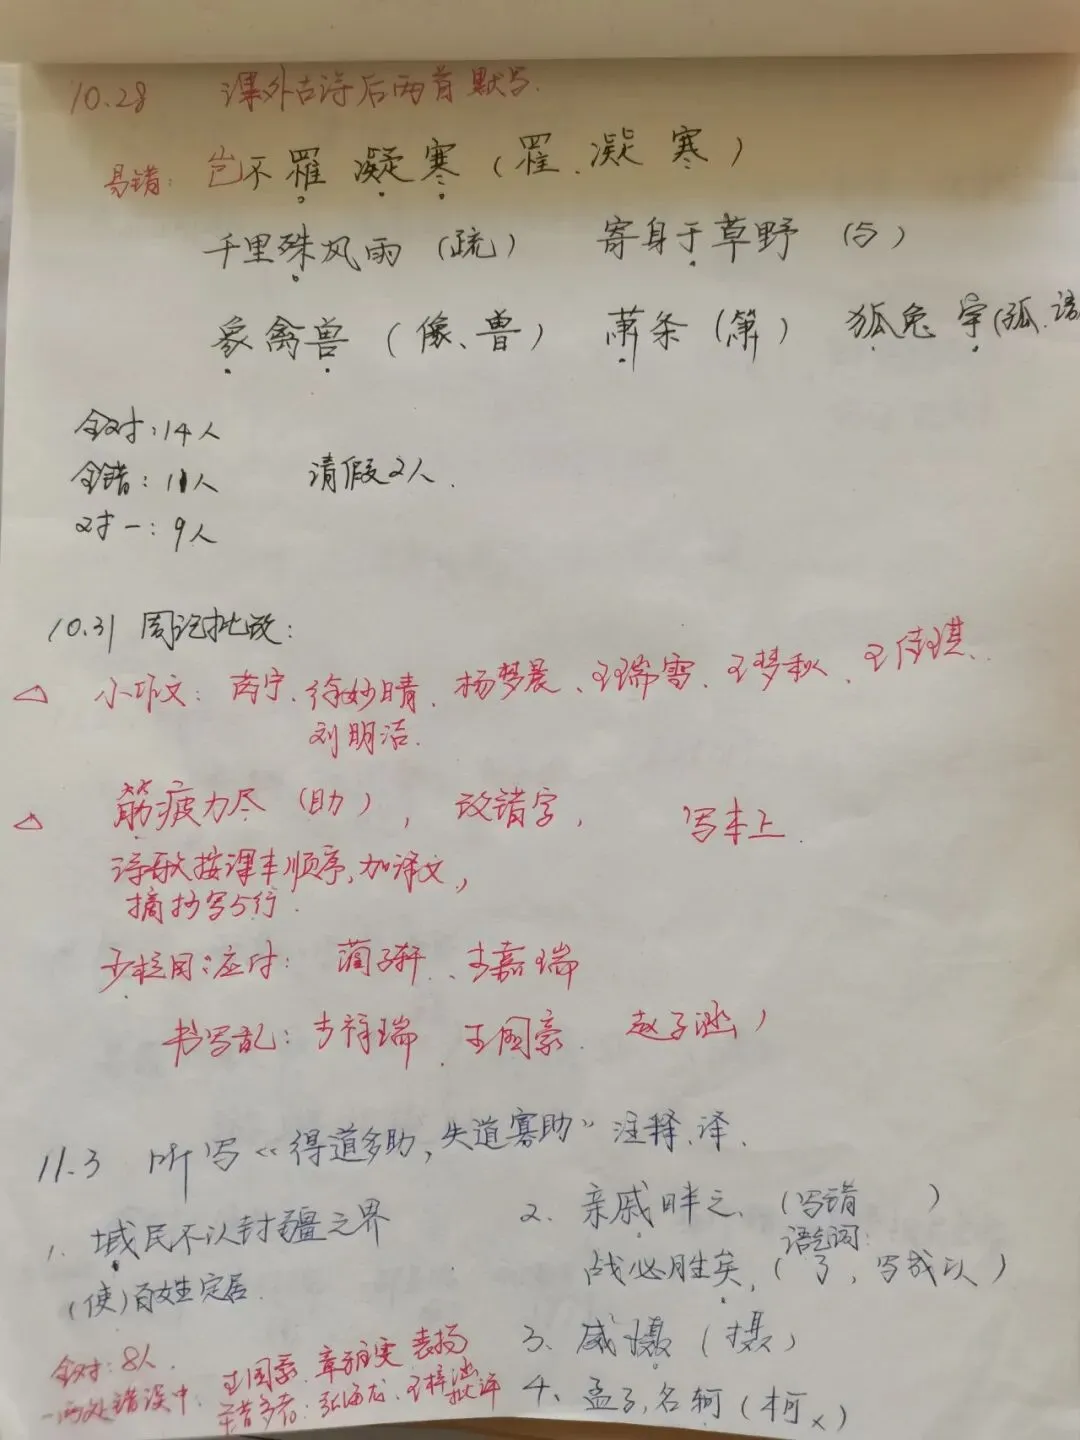 10.28 课外古诗后两首默写.
易错: 岂不罹凝寒 (罹、凝 寒)
千里殊风雨 (疏) 寄身于草野 (与)
象禽兽 (像、兽) 萧条 (箫) 狐兔宇(孤、语
全对: 14人
全错: 11人 请假2人.
对一: 9人
10.31 周记批改:
△ 小作文: 芮宁、徐妙晴、杨梦晨、王瑞雪、王梦秋、王佳琪、
刘明洁.
△ 筋疲力尽 (助), 改错字, 写本上.
诗歌按课本顺序,加译文,
摘抄写5行.
少栏目;应付: 蔺子轩、李嘉瑞
书写乱: 李祥瑞、王国豪、赵子涵)
11.3 听写《得道多助,失道寡助》注释、译.
1. 域民不以封疆之界
(使)百姓定居.
2. 亲戚畔之、(写错 )
语气词:
战必胜矣, (了, 写成以)
3、威慑 (摄)
4、孟子,名轲 (柯×)
全对: 8人.
王国豪、章雅雯 表扬
一两处错误中:
错多者: 张海龙、王梓涵 批评